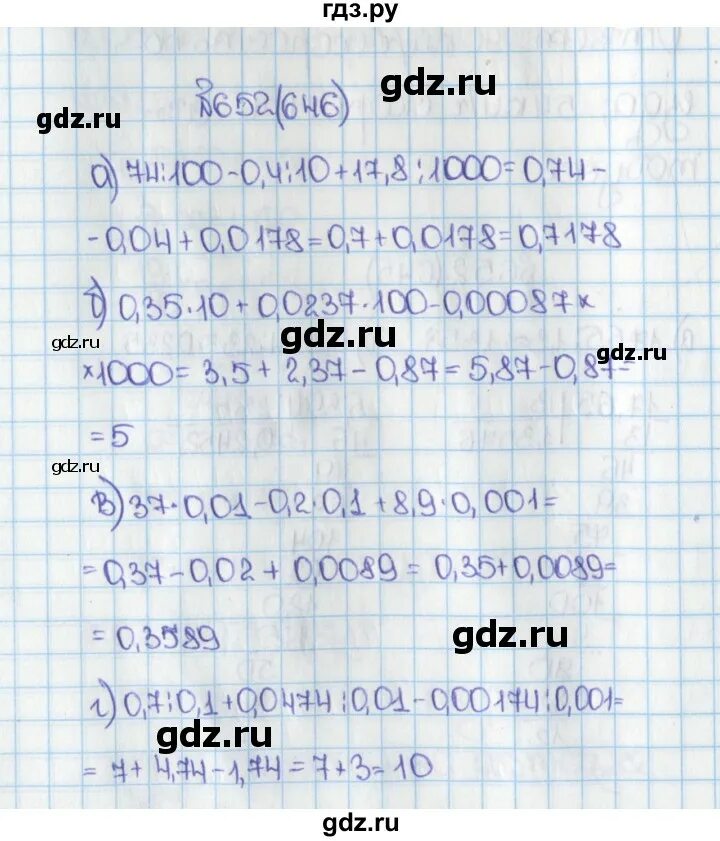 гдз.ру
gdz.ru
№652(646)
gdz.ru
а) 74:100-0,4:10+17,8:1000=0,74-
-0,04+0,0178=0,7+0,0178=0,7178
б) 0,35·10+0,0237·100-0,00087×
gdz.ru
gdz.ru
gdz.ru
×1000=3,5+2,37-0,87=5,87-0,87=
=5
gdz.ru
в) 37·0,01-0,2·0,1+8,9·0,001=
=0,37-0,02+0,0089=0,35+0,0089=
=0,3589
gdz.ru
г) 0,7:0,1+0,0474:0,01-0,00174:0,001=
gdz.ru
=7+4,74-1,74=7+3=10
gdz.ru